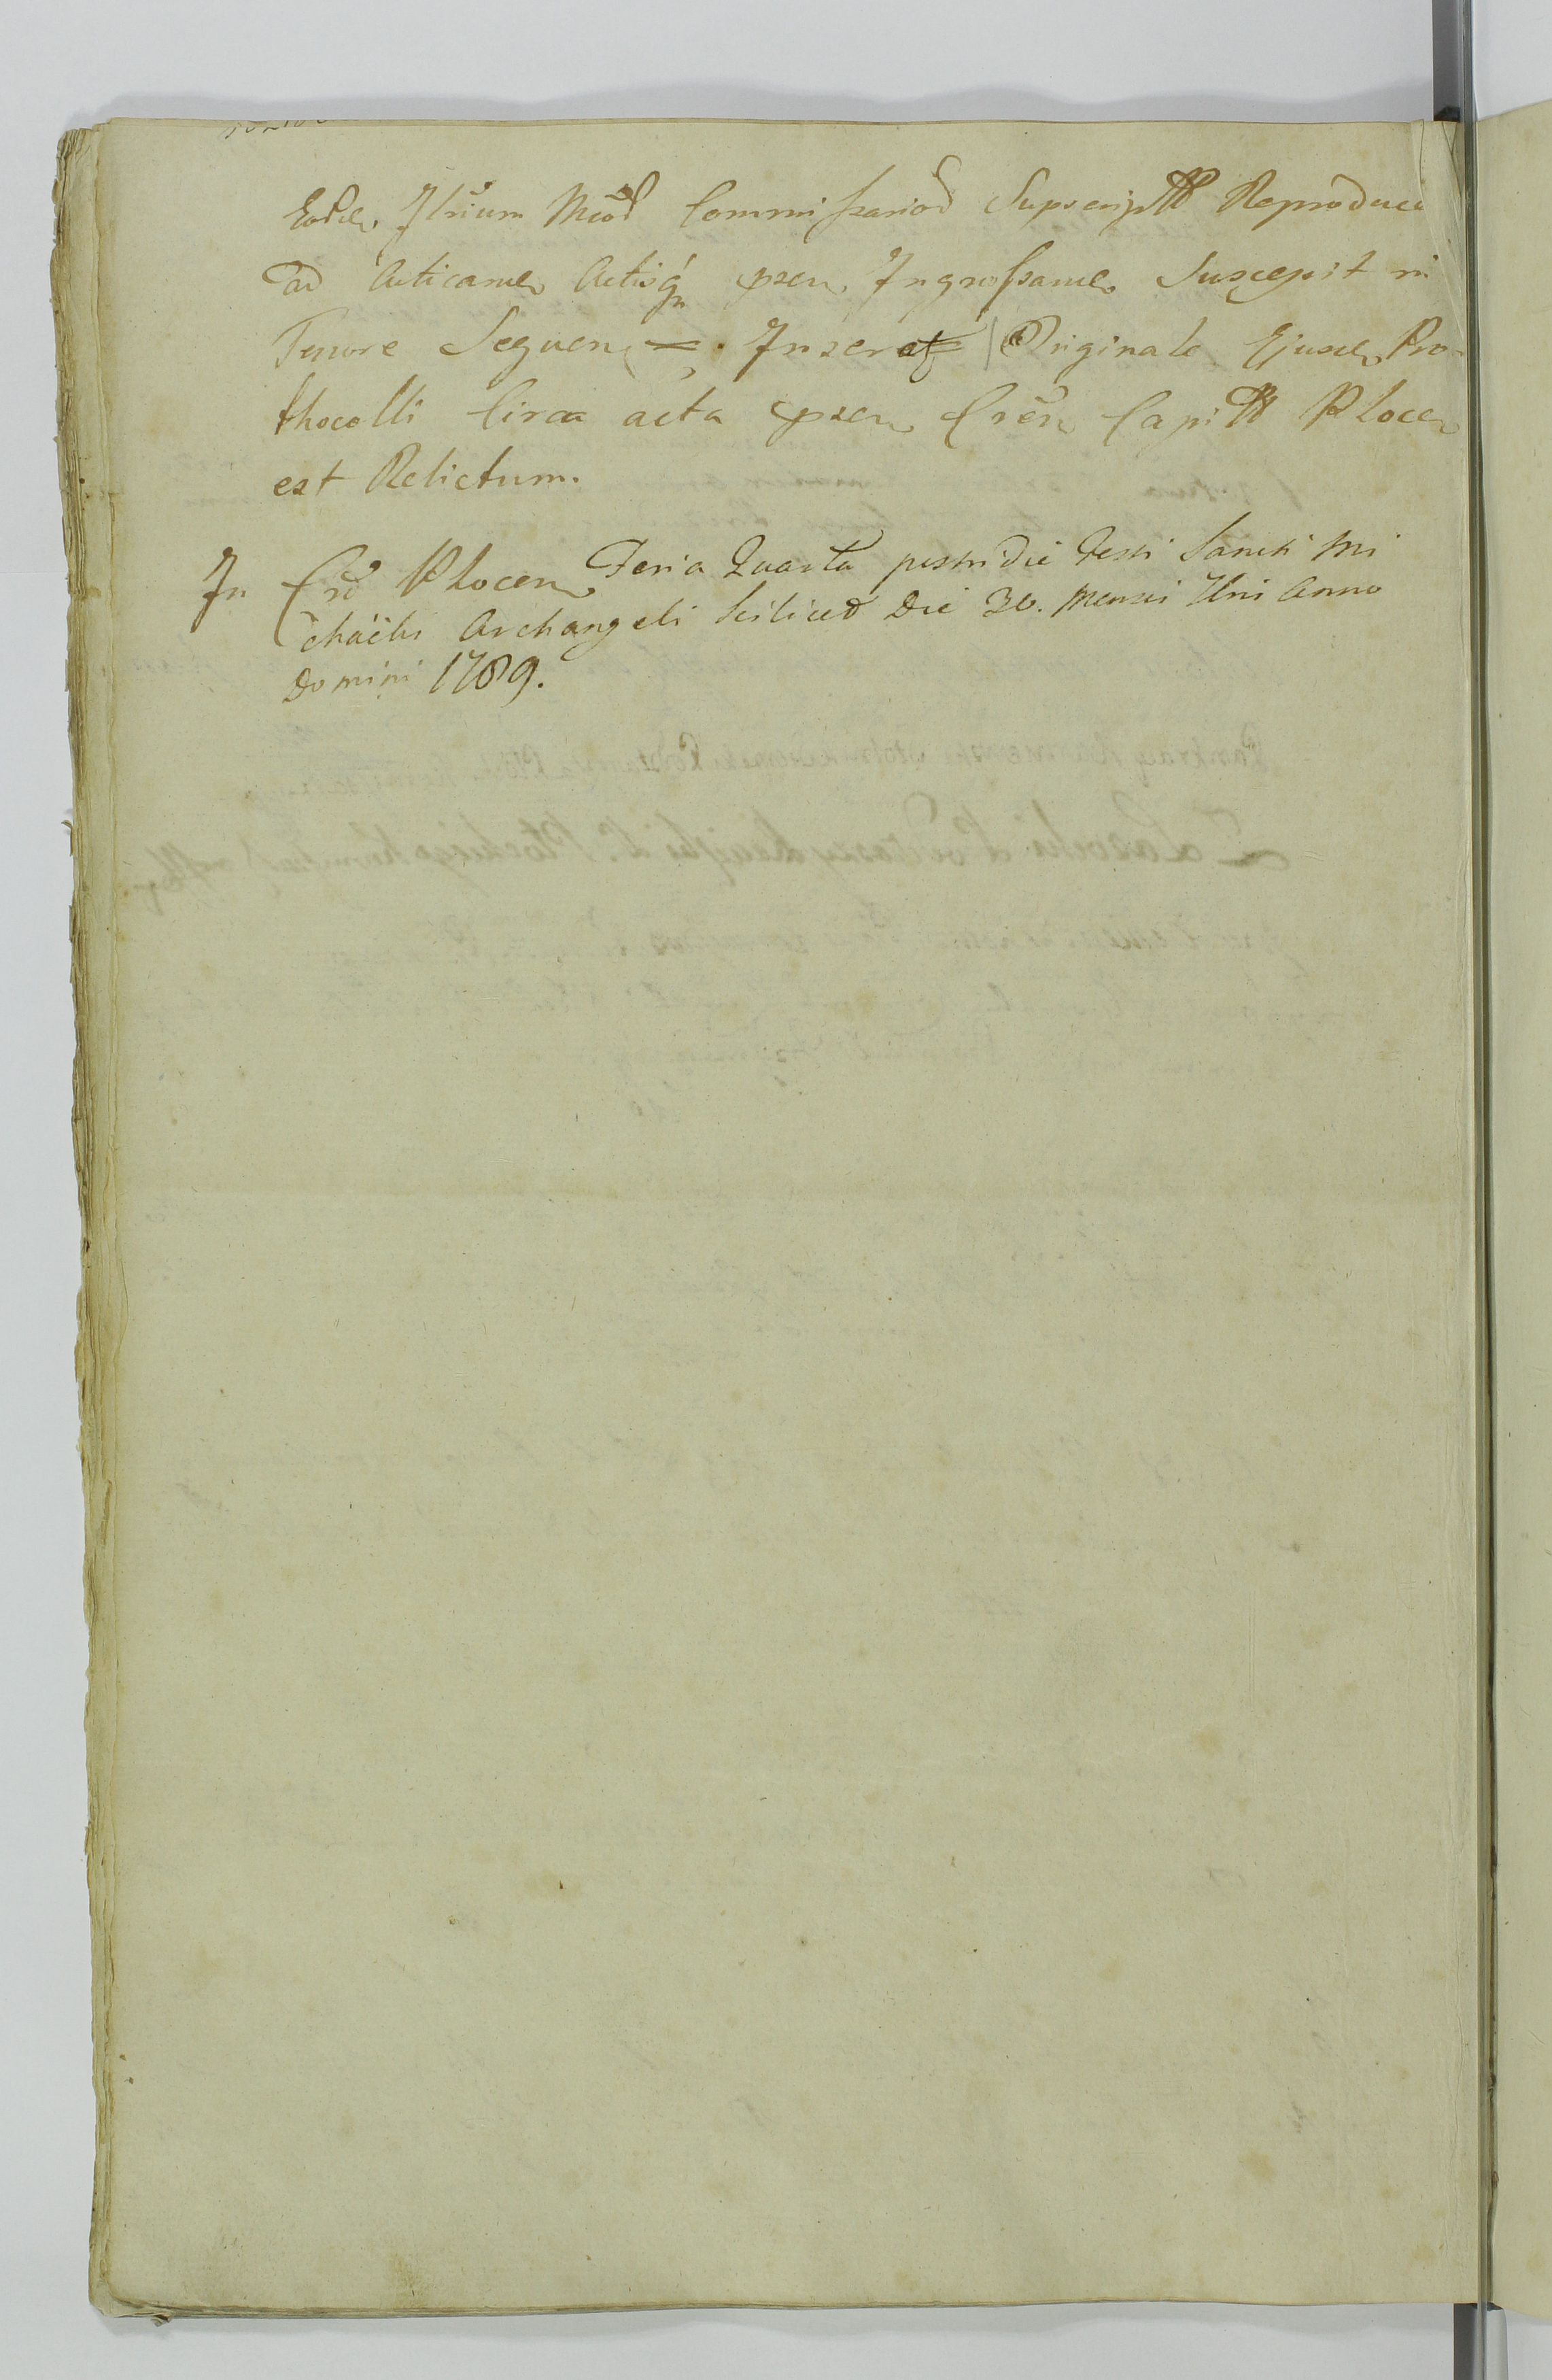 Eodem Illrium Mcōd Commissariod Supscriptt Reproduci
ad Acticane Actisq psen Ingrossane Suscepit in
Tenore Sequen = . Inserat Originale Ejusd Pro-
thocolli Circa acta psen Cren Capitt Plocen
est Relictum.
In Crd Plocen Feria Quarta postridie Festi Sancti Mi
chaelis Archangeli Scilicet Die 30. Mensis 7bris Anno
Domini 1789.